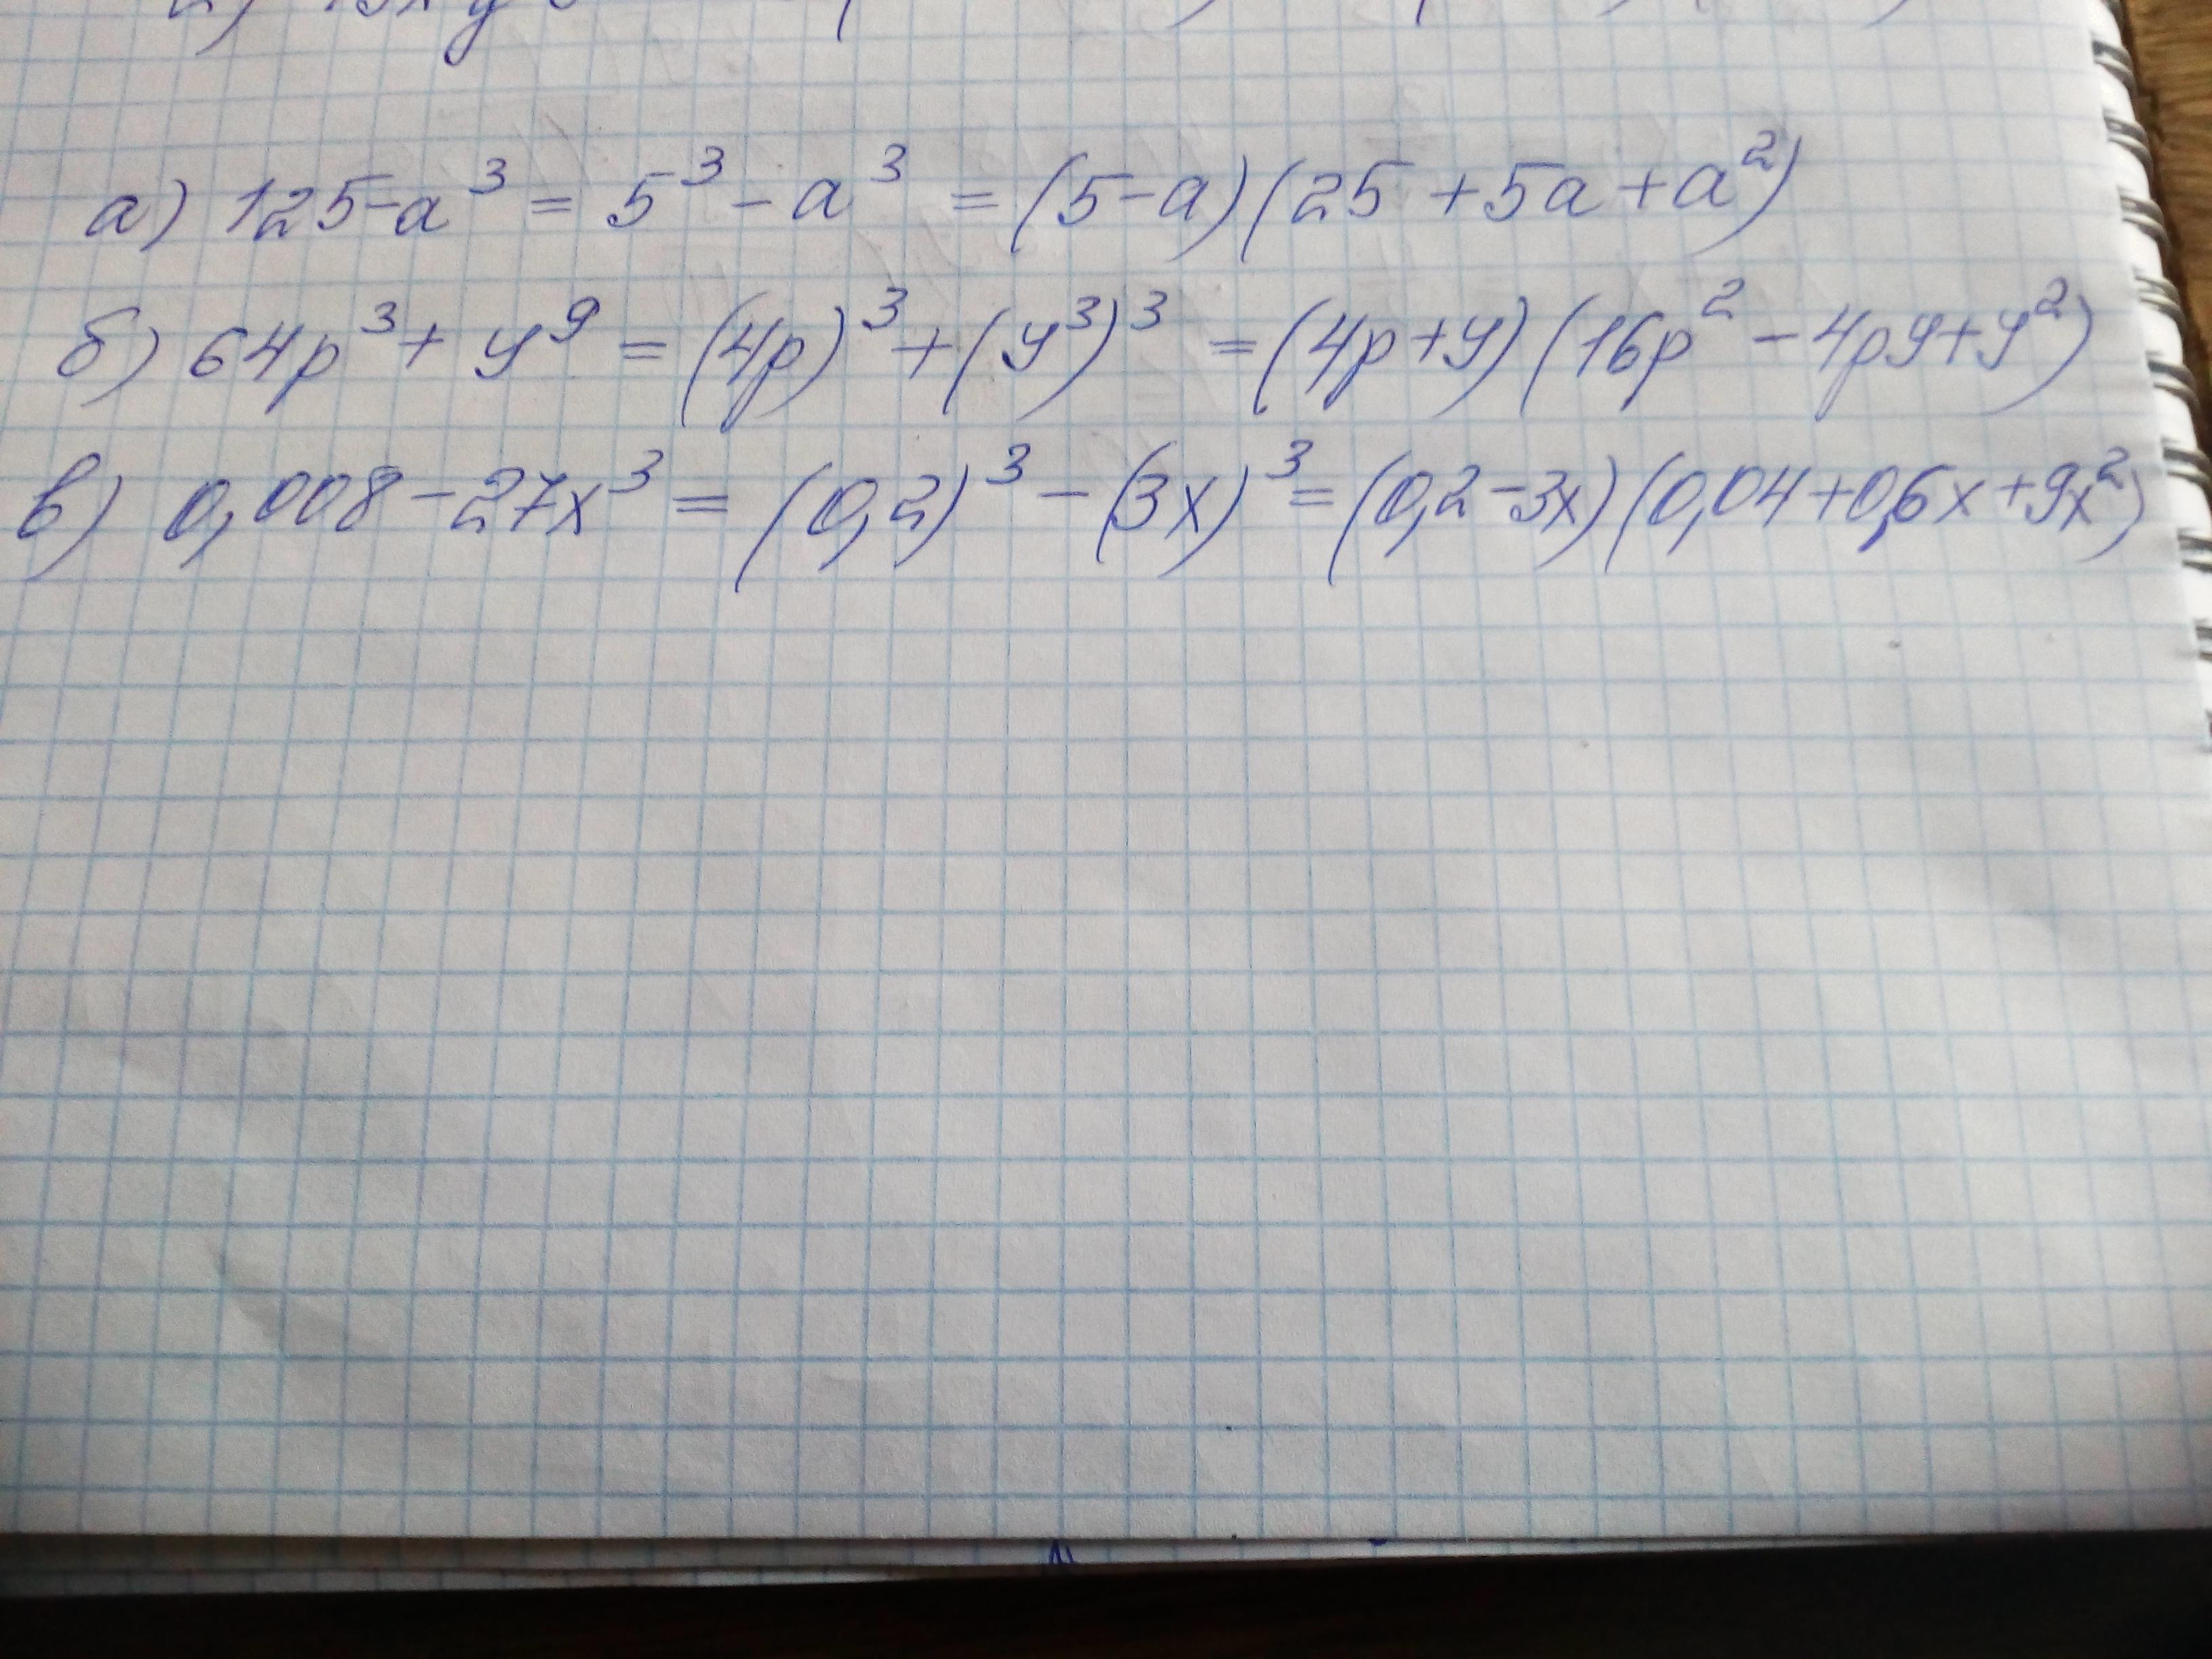 а) 125-a³ = 5³ - a³ = (5-a)(25+5a+a²)
б) 64p³ + y⁹ = (4p)³ + (y³)³ = (4p+y)(16p² - 4py + y²)
в) 0,008 - 27x³ = (0,2)³ - (3x)³ = (0,2-3x)(0,04+0,6x+9x²)